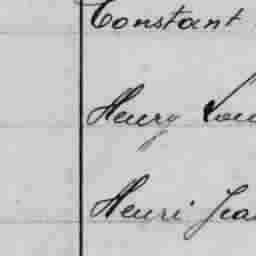 Constant
Henry Lou
Henri Jea